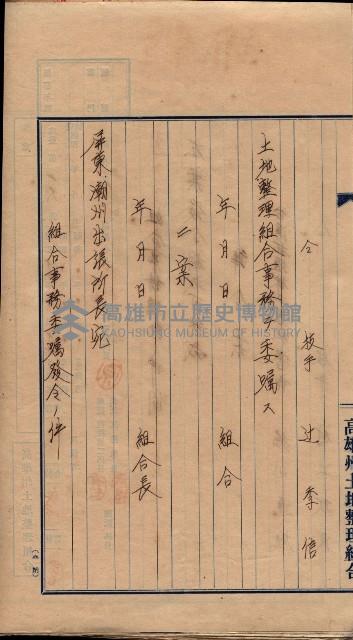 仝 技手 辻 季信
土地整理組合事務ヲ委嘱ス
年月日 組合
二案
年月日 組合長
屏東潮州出張所長宛
組合事務委嘱發令ノ件
高雄州土地整理組合
高雄市立歷史博物館
KAOHSIUNG MUSEUM OF HISTORY